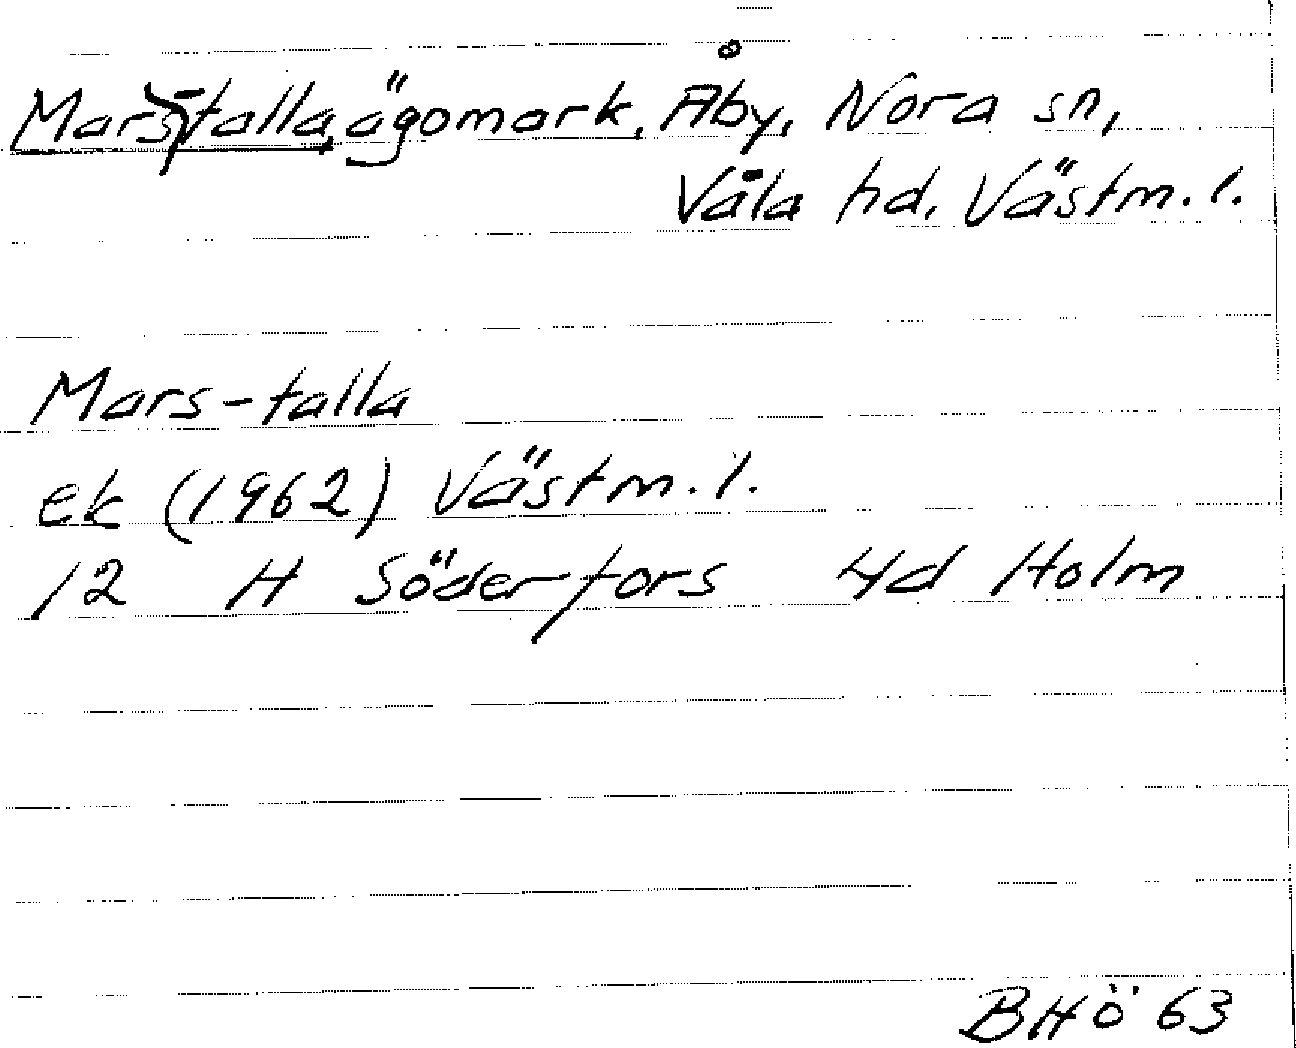 Marstalla, ägomark, Åby, Nora sn,
Våla hd, Västm. l.
Mars-talla
ek (1962) Västm. l.
12 H Söderfors 4d Holm
BHÖ 63